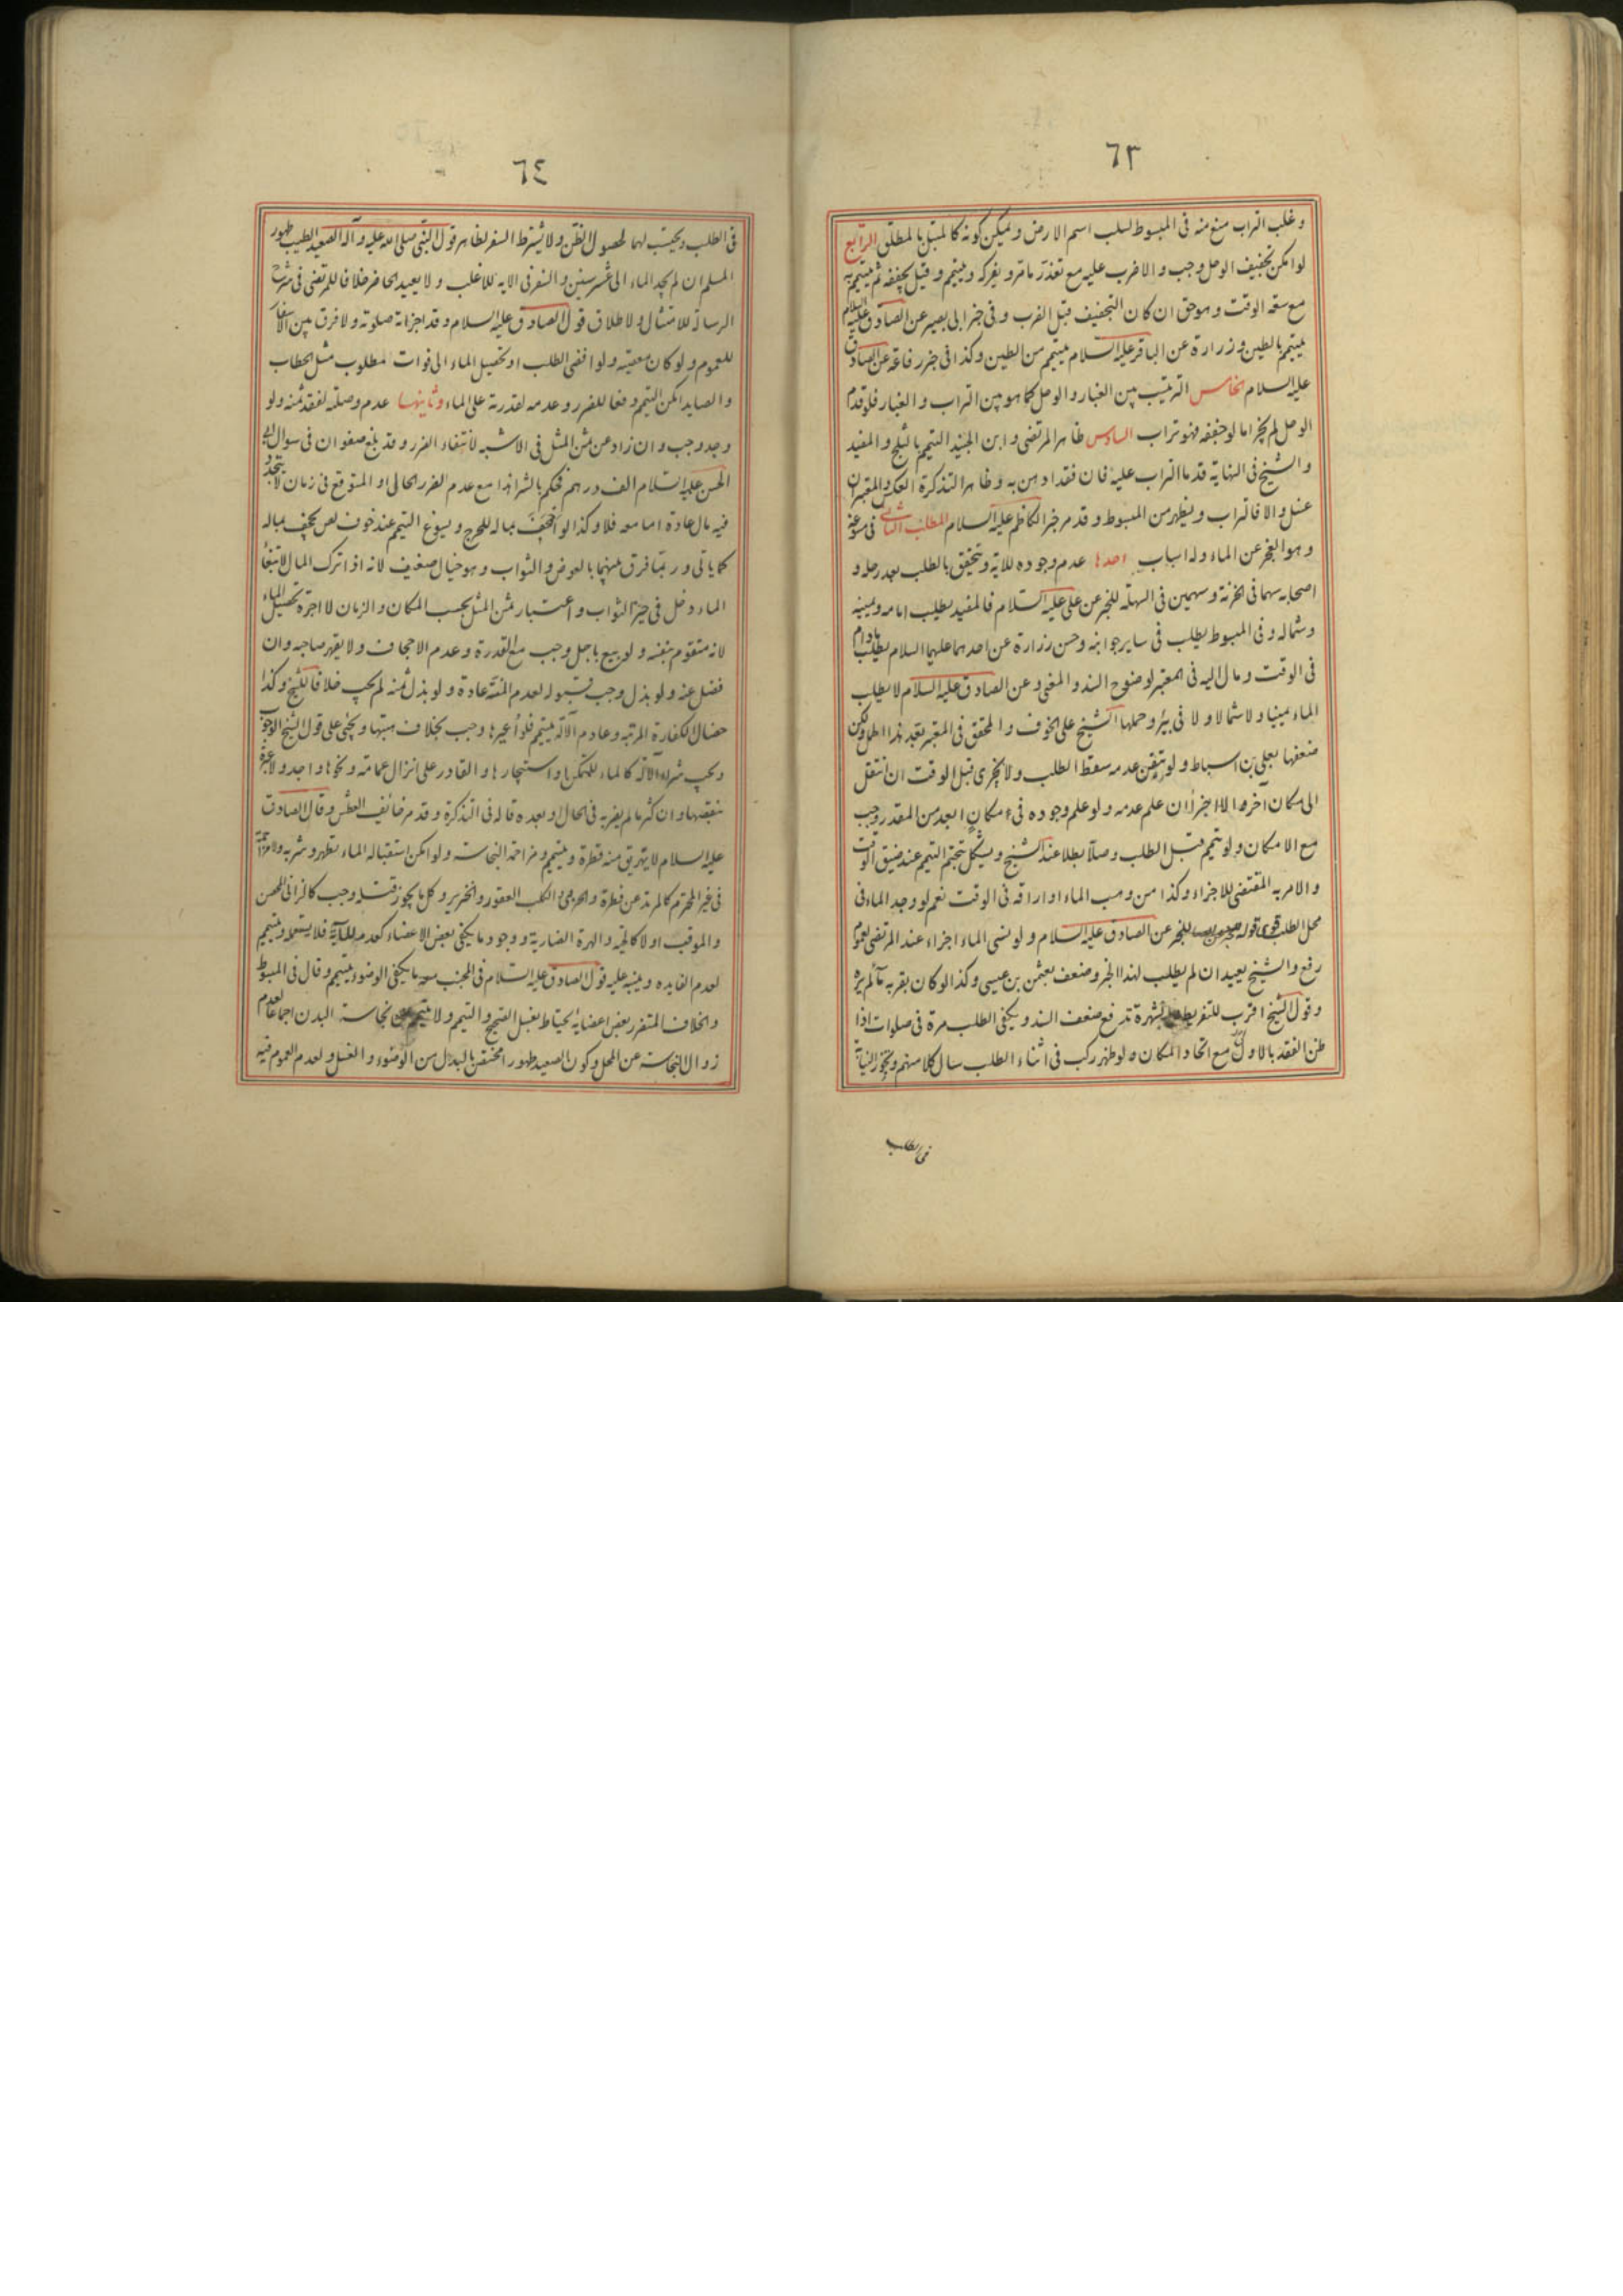 ٦٣
وغلب التراب منع منه في المبسوط لسلب اسم الارض ويمكن كونه كالمبتل بالمطلق الرابع
لو امكن تجفيف الوحل وجب والا ضرب عليه مع تعذر ما مر و يفركه ويتيمم وقيل يجففه ثم يتيمم به
مع سعة الوقت وهو حق ان كان التجفيف قبل الضرب وفي خبر ابي بصير عن الصادق عليه السلام
يتيمم بالطين وزرارة عن الباقر عليه السلام يتيمم من الطين وكذا في خبر رفاعة عن الصادق
عليه السلام الخامس الترتيب بين الغبار والوحل كما هو بين التراب والغبار فلو قدم
الوحل لم يجز اما لو جففه فهو تراب السادس ظاهر المرتضى وابن الجنيد التيمم بالثلج والمفيد
والشيخ في النهاية قدما التراب عليه فان فقد ادهن به وظاهر التذكرة العكس والمعتبر ان
غسل والا فالتراب ويظهر من المبسوط وقد مر خبر الكاظم عليه السلام المطلب الثاني في مسوغه
وهو العجز عن الماء وله اسباب احدها عدم وجوده للاية ويتحقق بالطلب بعد رحله و
اصحابه سهما في الحزنة وسهمين في السهلة للخبر عن علي عليه السلام فالمفيد يطلب امامه ويمينه
وشماله وفي المبسوط يطلب في ساير جوانبه وحسن زرارة عن احدهما عليهما السلام يطلب مادام
في الوقت ومال اليه في المعتبر لوضوح السند والمعنى وعن الصادق عليه السلام لا يطلب
الماء يمينا ولا شمالا ولا في بئر وحملها الشيخ على الخوف والمحقق في المعتبر بعد هذا الحمل ولكن
ضعفها بعلي بن اسباط ولو تيقن عدمه سقط الطلب ولا يجزى قبل الوقت ان انتقل
الى مكان آخر والا اجزأ ان علم عدمه ولو علم وجوده في مكان ابعد من المقدر وجب
مع الامكان ولو تيمم قبل الطلب وصلا بطلا عند الشيخ ويشكل بتحتم التيمم عند ضيق الوقت
والامر به المقتضى للاجزاء وكذا من وهب الماء او اراقه في الوقت نعم لو وجد الماء في
محل الطلب قوى قوله للخبر عن الصادق عليه السلام ولو نسى الماء اجزاء عند المرتضى لعموم
رفع والشيخ يعيد ان لم يطلب لهذا الخبر وضعف بعثمن بن عيسى وكذا لو كان بقربه ما لم يره
وقول الشيخ اقرب للتفريط والشهرة تدفع ضعف السند ويكفي الطلب مرة في صلوات اذا
ظن الفقد بالاول مع اتحاد المكان ولو ظهر ركب في اثناء الطلب سال كلا منهم ويجوز النيابة
في الطلب
٦٤
في الطلب ويحتسب لهما لحصول الظن ولا يشترط السفر لظاهر قول النبي صلى الله عليه وآله الصعيد الطيب طهور
المسلم ان لم يجد الماء الى عشر سنين والسفر في الايه للاغلب ولا يعيد الحاضر خلافا للمرتضى في شرح
الرسالة للامتثال ولاطلاق قول الصادق عليه السلام وقد اجزاته صلوته ولا فرق بين الاسفار
للعموم ولو كان معصيته ولو افضى الطلب او تحصيل الماء الى فوات مطلوب مثل الحطاب
والصايد امكن التيمم دفعا للضرر وعدمه لقدرته على الماء وثانيها عدم وصلته لفقد ثمنه ولو
وجد وجب وان زاد عن ثمن المثل في الاشبه لانتفاء الضرر وقد بلغ صفوان في سوال ابي
الحسن عليه السلام الف درهم فحكم بالشرا هذا مع عدم الضرر الحالي او المتوقع في زمان لا يتجدد
فيه مال عادة اما معه فلا وكذا لو اجحف بماله للحرج ويسوغ التيمم عند خوف لص يجحف بماله
كما ياتي وربما فرق بينهما بالعوض والثواب وهو خيال ضعيف لانه اذا ترك المال لابتغا
الماء دخل في حيز الثواب واعتبار ثمن المثل بحسب المكان والزمان لا اجرة تحصيل الماء
لانه متقوم بنفسه ولو بيع باجل وجب مع القدرة وعدم الاجحاف ولا يقهر صاحبه وان
فضل عنه ولو بذل وجب قبوله لعدم المنة عادة ولو بذل ثمنه لم يجب خلافا للشيخ وكذا
خصال الكفارة المرتبه وعادم الآلة يتيمم فلو اعيرها وجب بخلاف هبتها ويجئ على قول الشيخ الوجوب
ويجب شراء الآلة كالماء للتمكن واستيجارها والقادر على انزال عمامته ونحوها واجد ولا عبرة
بنقصها وان كثر ما لم يضر به في الحال او بعده قاله في التذكرة وقد مر خائف العطش وقال الصادق
عليه السلام لا يهريق منه قطرة ويتيمم ومزاحمة النجاسة ولو امكن استقباله الماء تطهر وشربه ولا مزاحمة
في غير المحترم كالمرتد عن فطرة والحربى والكلب العقور والخنزير وكل ما يجوز قتله وجب كالزاني المحصن
والموقب او لا كالحية والهرة الضارية ووجود ما يكفي بعض الاعضاء كعدمه للاية فلا يستعمله ويتيمم
لعدم الفايده وينبه عليه قول الصادق عليه السلام في المجنب معه ما يكفي الوضوء يتيمم وقال في المبسوط
والخلاف المتضرر بعض اعضايه يحتاط بغسل الصحيح والتيمم ولا يتيمم عن نجاسة البدن اجماعا لعدم
زوال النجاسة عن المحل وكون الصعيد طهورا مختص بالبدل من الوضوء والغسل ولعدم العموم فيه